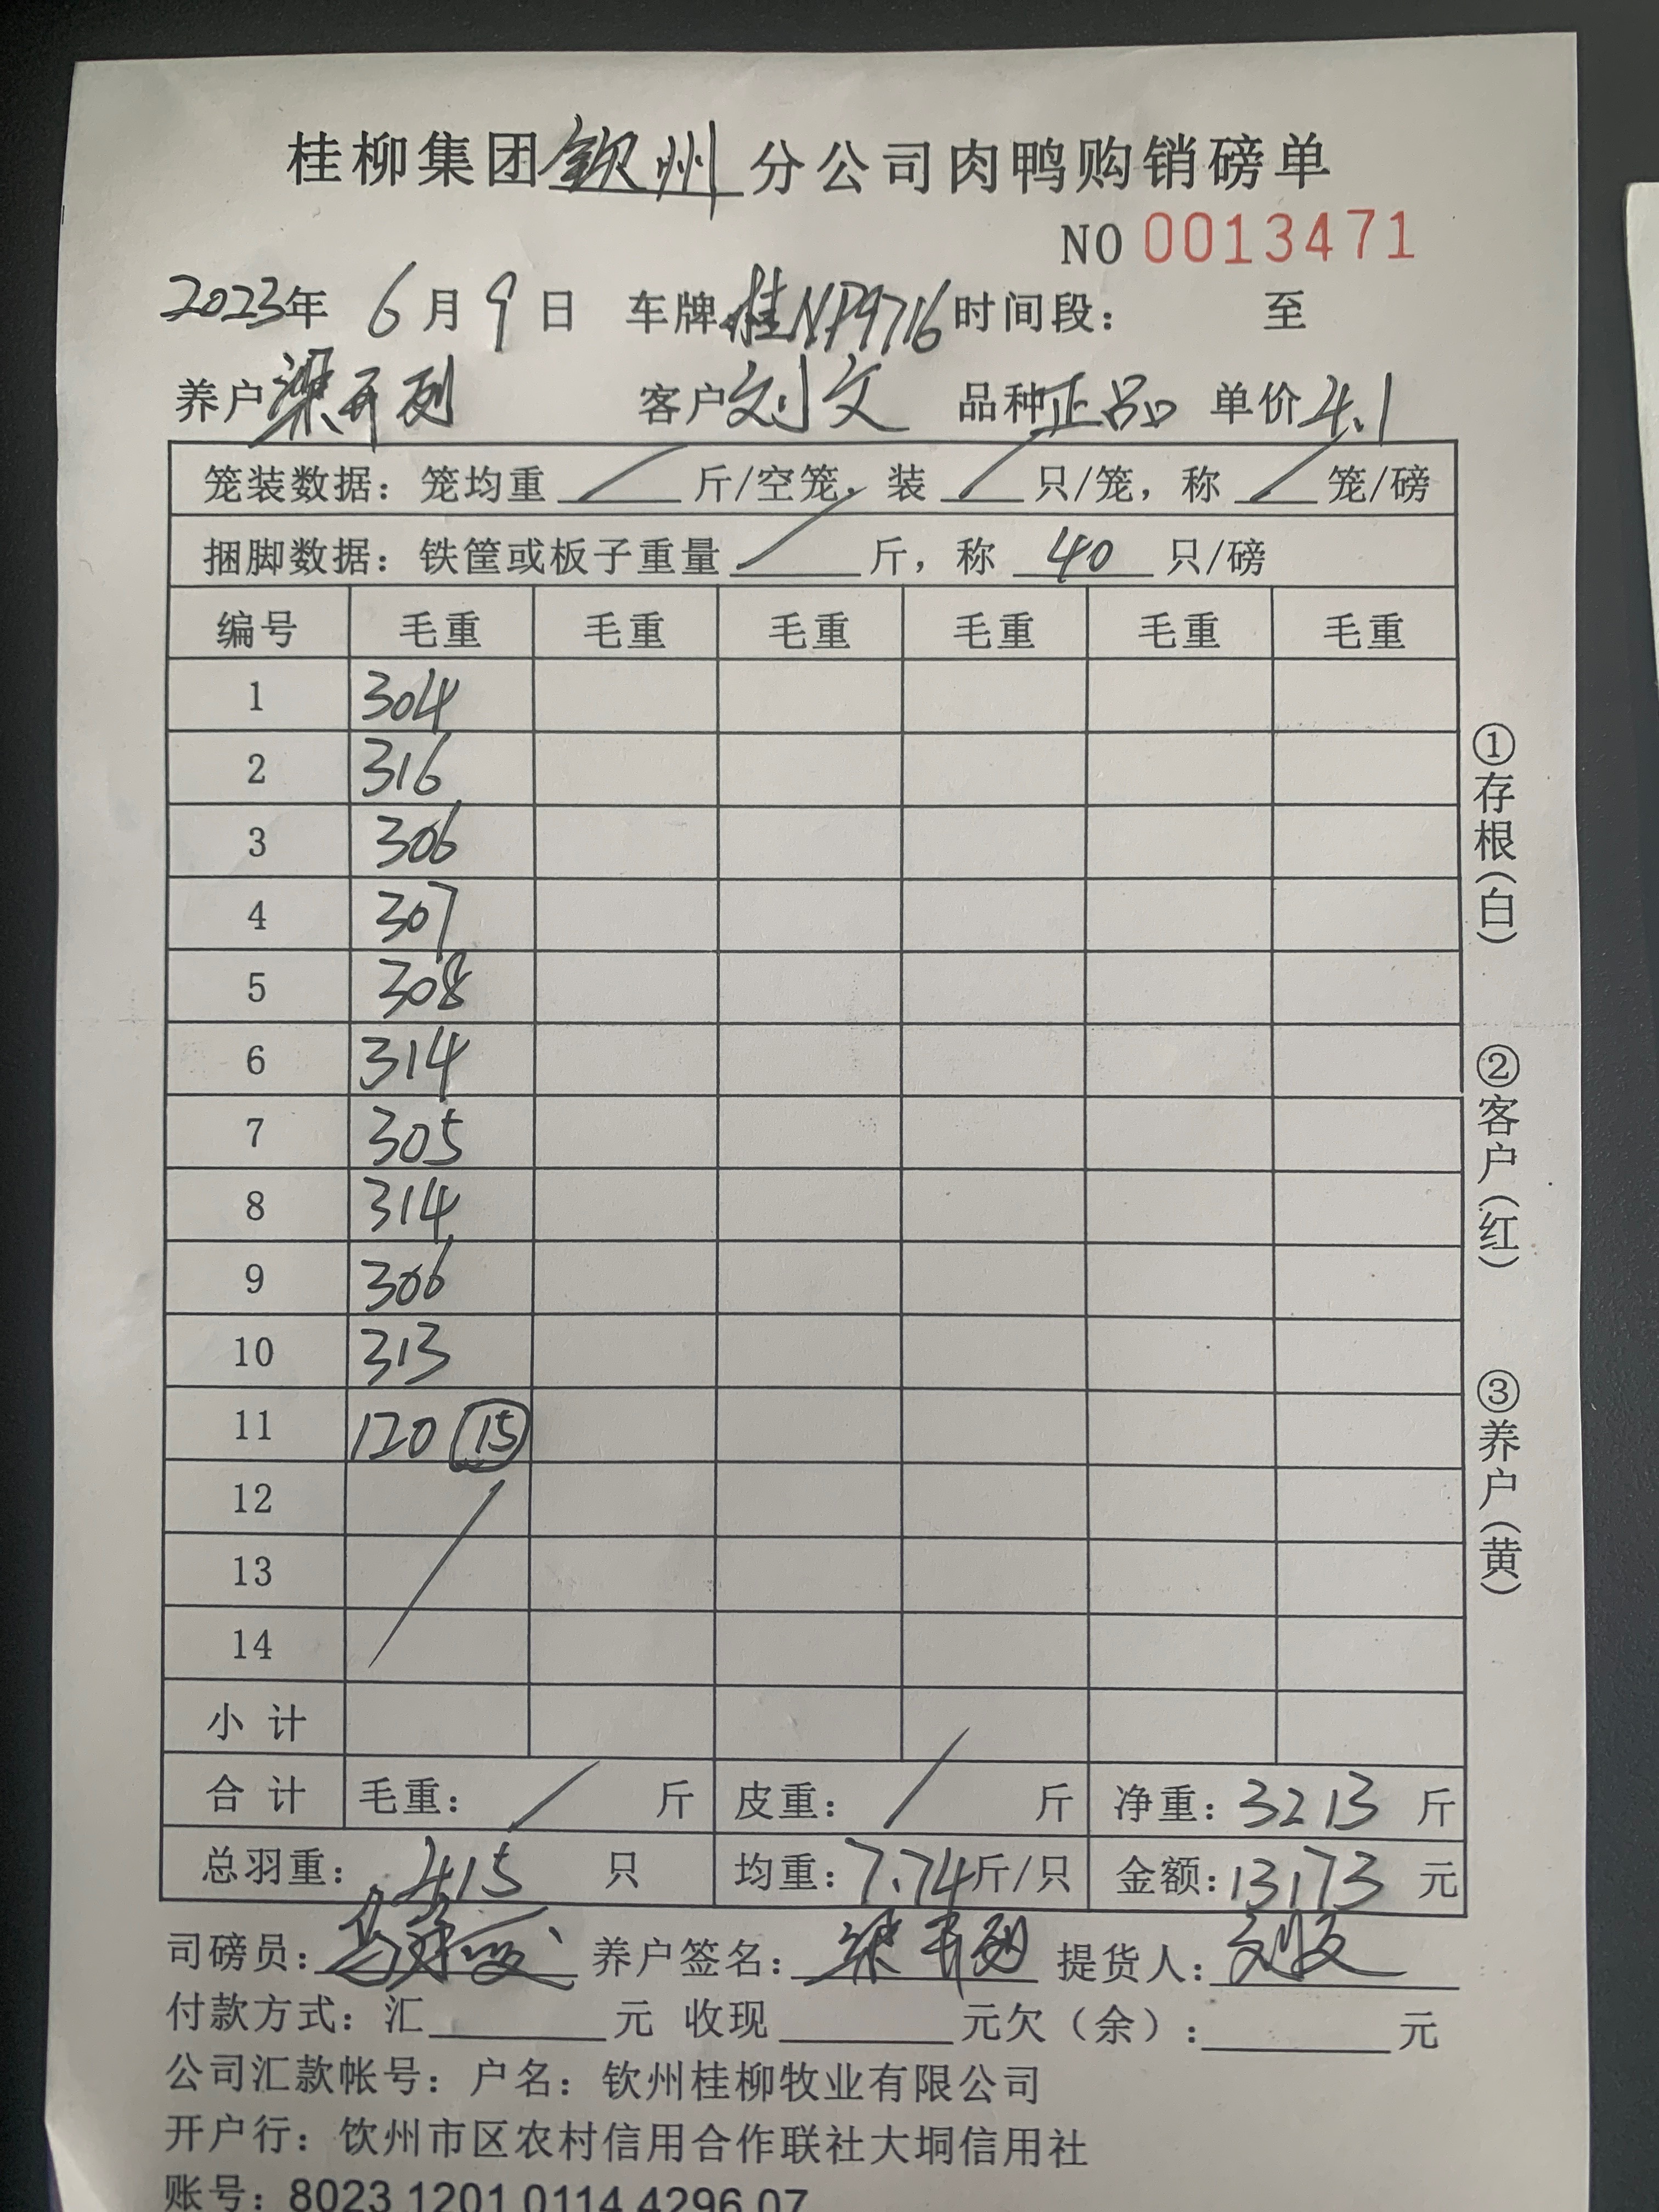 桂柳集团钦州分公司肉鸭购销磅单
NO 0013471
2023年 6月9日 车牌桂NP9716时间段： 至
养户梁开烈 客户刘文 品种正品 单价4.1
笼装数据：笼均重 斤/空笼，装 只/笼，称 笼/磅
捆脚数据：铁筐或板子重量 斤，称 40 只/磅
编号 毛重 毛重 毛重 毛重 毛重 毛重
1 304
2 316
3 306
4 307
5 308
6 314
7 305
8 314
9 306
10 313
11 120 15
12
13
14
小计
合计 毛重： 斤 皮重： 斤 净重：3213 斤
总羽重： 415 只 均重：7.74斤/只 金额：13173 元
司磅员： 养户签名： 梁开烈 提货人：刘文
付款方式：汇 元 收现 元欠（余）： 元
公司汇款帐号：户名：钦州桂柳牧业有限公司
开户行：钦州市区农村信用合作联社大垌信用社
账号：8023 1201 0114 4296 07
①存根（白）
②客户（红）
③养户（黄）